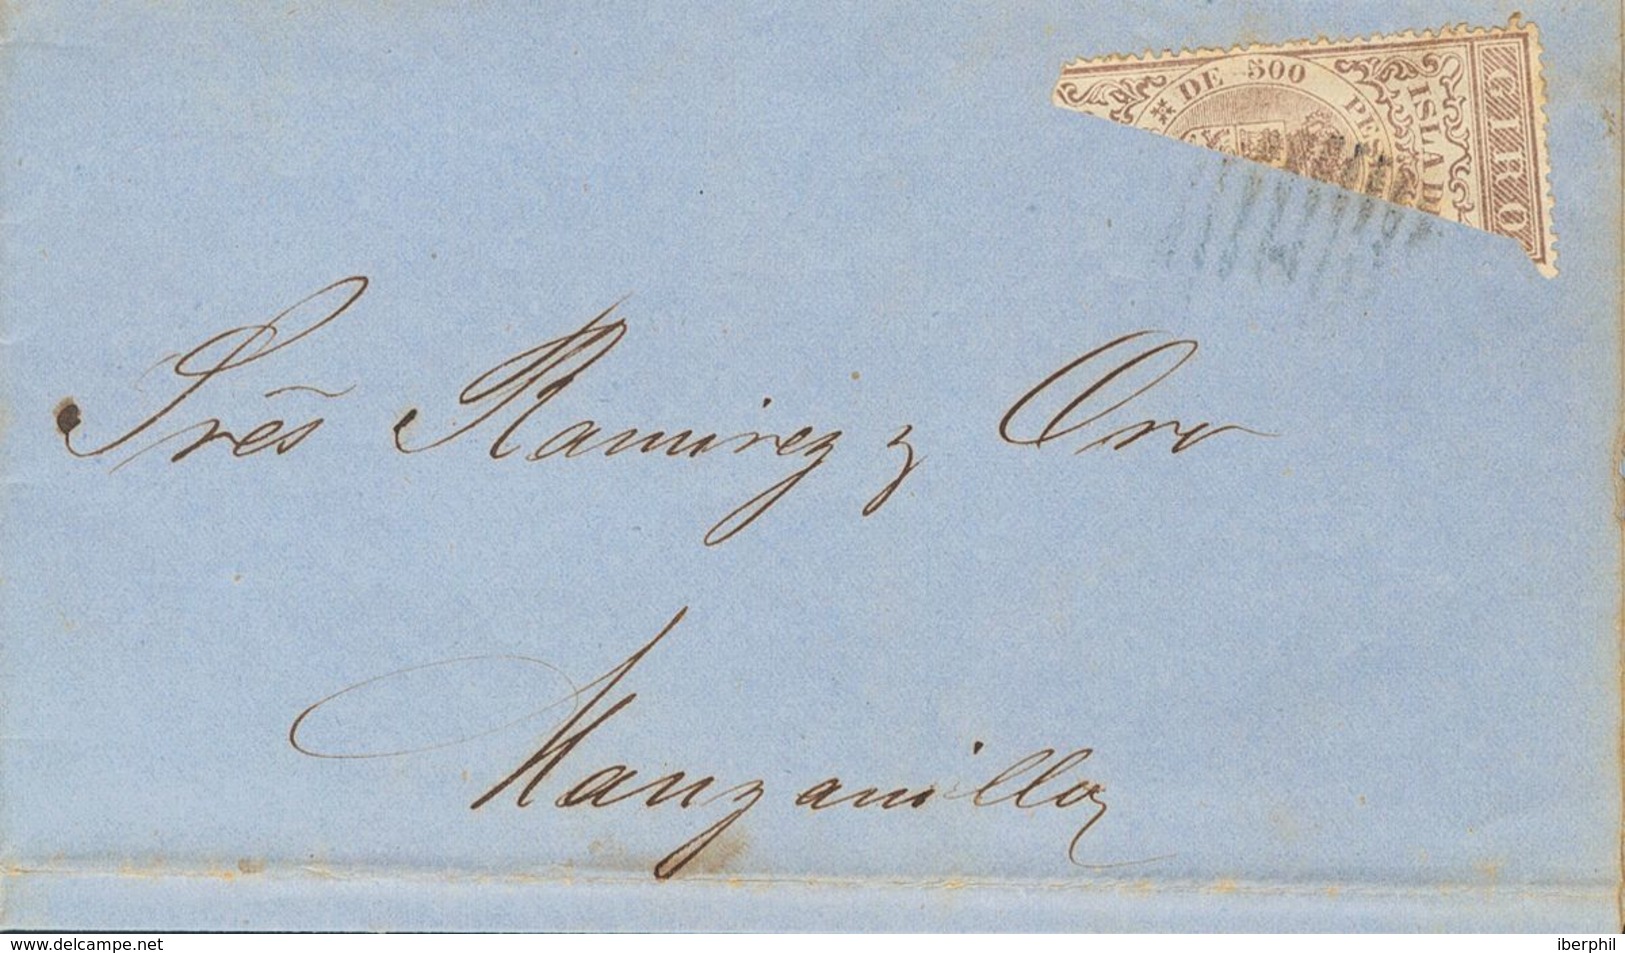 GIRO
ISLA DE
DE 500 PES
Srẽs Ramirez y Oro
Manzanillo
www.delcampe.net
iberphil